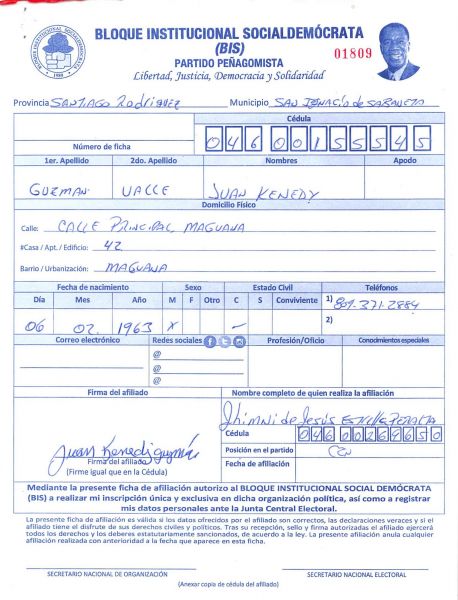 BLOQUE INSTITUCIONAL SOCIALDEMÓCRATA
(BIS)
PARTIDO PEÑAGOMISTA
Libertad, Justicia, Democracia y Solidaridad
01809
Provincia SANTIAGO Rodriguez Municipio SAN IGNACIO de SABANETA
Cédula
Número de ficha 04600155545
1er. Apellido 2do. Apellido Nombres Apodo
GUZMAN VALLE JUAN KENEDY
Domicilio Físico
Calle: CALLE PRINCIPAL MAGUANA
#Casa / Apt. / Edificio: 42
Barrio / Urbanización: MAGUANA
Fecha de nacimiento Sexo Estado Civil Teléfonos
Día Mes Año M F Otro C S Conviviente 1) 809-371-2884
06 02. 1963 X – 2)
Correo electrónico Redes sociales Profesión/Oficio Conocimientos especiales
@
@
@
Firma del afiliado Nombre completo de quien realiza la afiliación
Jhimni de Jesús Estrella PERALTA
Cédula
04600264650
Juan Kenedi guzmán
Firma del afiliado
(Firme igual que en la Cédula)
Posición en el partido
Fecha de afiliación
Mediante la presente ficha de afiliación autorizo al BLOQUE INSTITUCIONAL SOCIAL DEMÓCRATA
(BIS) a realizar mi inscripción única y exclusiva en dicha organización política, así como a registrar
mis datos personales ante la Junta Central Electoral.
La presente ficha de afiliación es válida si los datos ofrecidos por el afiliado son correctos, las declaraciones veraces y si el
afiliado tiene el disfrute de sus derechos civiles y políticos. Tras su recepción, sello y firma autorizadas el afiliado ejercerá
todos los derechos y los deberes estatutariamente sancionados, de acuerdo a la ley. La presente afiliación anula cualquier
afiliación realizada con anterioridad a la fecha que aparece en esta ficha.
SECRETARIO NACIONAL DE ORGANIZACIÓN SECRETARIO NACIONAL ELECTORAL
(Anexar copia de cédula del afiliado)